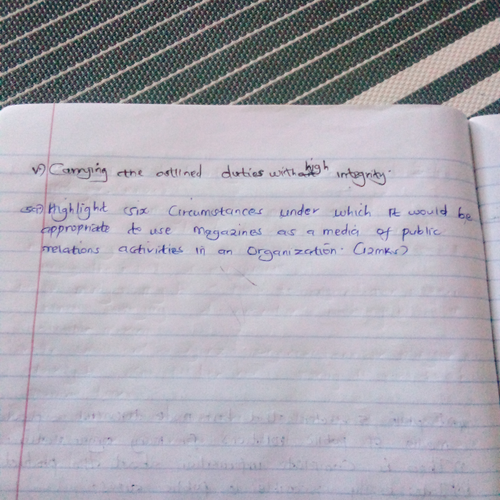 v) Carrying the outlined duties with high integrity.
Highlight six Circumstances under which it would be
appropriate to use Magazines as a media of public
relations activities in an Organization. (12mks)